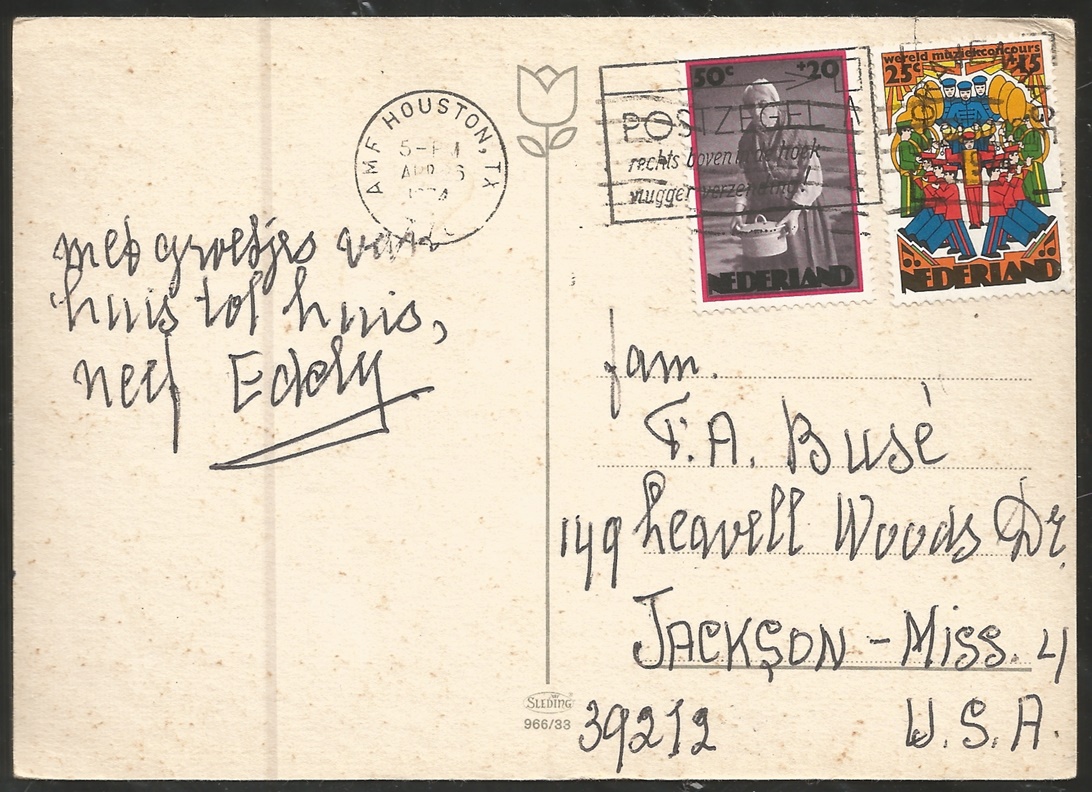 AMF HOUSTON, TX
5-PM
APR
1974
met groetjes van
huis tot huis,
neef Eddy
POSTZEGEL
rechts boven in de hoek
vlugger verzending!
50c +20
NEDERLAND
wereld muziekconcours
25c +15
NEDERLAND
fam.
F.A. Busé
149 Leavell Woods Dr.
JACKSON - MISS. 4
39212 U.S.A.
SLEDING
966/33